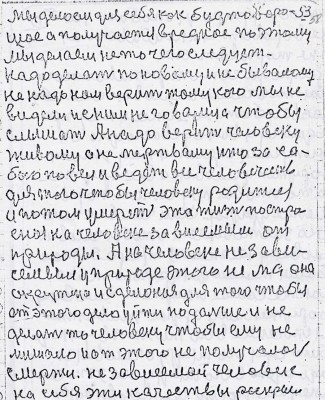 мы делоем для себя как будто хоро- 53
шое а получаетя вредное поэтому
мы делаем не то чего следует.
надо делат по новому и не бывалому
не надо нам верит тому кого мы не
видели и с ним не говарили чтобы
слышат А надо верит человеку
живому а не мертвому кто за са-
бою повел и ведет все человечество
для того чтобы человеку родится
и потом умерет эта жизн построе
на человеке зависемым от
природы. А на человеке незави-
семым у природе этого не
и зделоная для того чтобы
от этого дело уйти подалше и не
делат то человеку чтобы ему не
мишало и от этого не получалос
смерти. независемай человек
на себя эти качества раскрыл